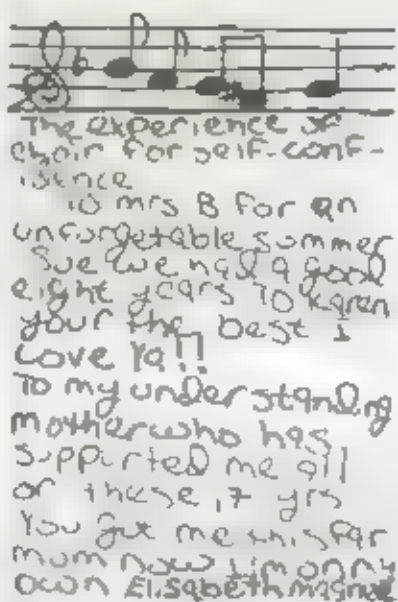 The experience of
choir for self-conf-
idence
To mrs B for an
unforgetable summer
Sue we had a good
eight years To Karen
your the best I
Love Ya!!
To my understanding
mother who has
supported me all
of these 17 yrs
You got me this far
mom now I'm on my
own Elisabeth